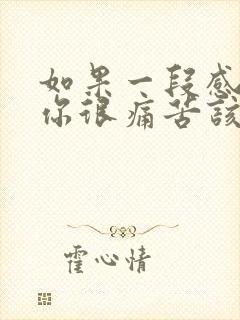 如果一段感
你很痛苦该
霍心情